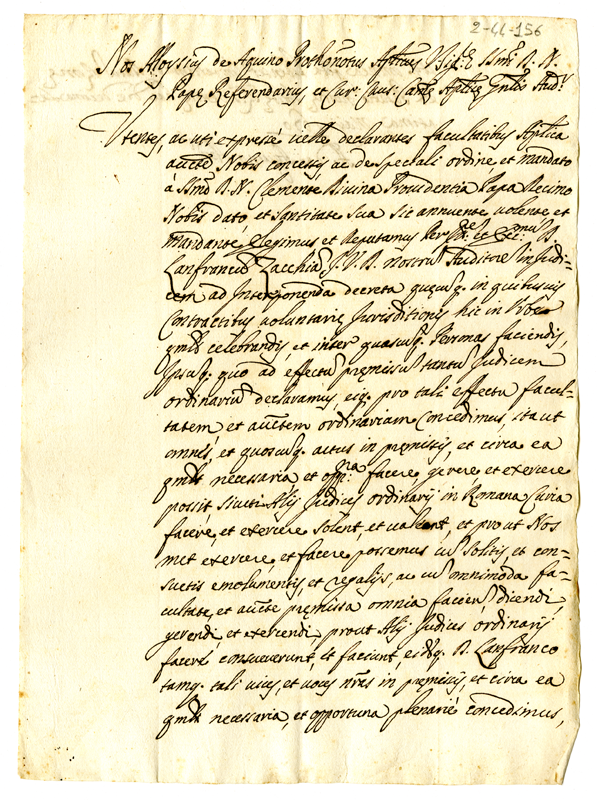 2-44-156
Nos Aloysius de Aquino Prothonotus Aplicus S.mi D. N.
Pape Referendarius, et Cur: Caus: Cam.e Aplice Gnlis Aud.r
Utentes, ac uti expresse velle declarantes facultatibus Aplica
aucte Nobis concessis, ac de speciali ordine, et mandato
à Smo D. N. Clemente Divina Providentia Papa Decimo
Nobis dato, et Santitate Sua sic annuente volente et
mandante, Elegimus et Deputamus Per Ill.e et Exc.mus D.
Lanfrancus Zacchia J. U. D. nostrus Auditore in Judi-
cem ad Interponenda decreta queçuq. in quibusvis
Contractibus voluntarie Jurisditionis hic in Urbe
qmlt celebrandis, et inter quascuq. Personas faciendis,
Ipsuq. quo ad effectu premissu tantu Judicem
ordinariu declaramus, eiq. pro tali effectu facul-
tatem et auctem ordinariam Concedimus, ita ut
omnes, et quoscuq. actus in premissis, et circa ea
qmlt necessaria et opp.na facere, gerere, et exercere
possit sicuti Alij Judices ordinarij in Romana Curia
facere, et exercere solent, et valent, et prout Nos
met exercere, et facere possemus cu solitis, et con-
suetis emolumentis, et regalijs, ac cu omnimoda fa-
cultate, et aucte premissa omnia facien, dicendi,
gerendi, et exercendi prout Alij Judices ordinarij
facere consueverunt, et faciunt, eidq. D. Lanfranco
tamq. tali vices, et voces nras in premissis, et circa ea
qmlt necessaria, et opportuna plenarie concedimus,